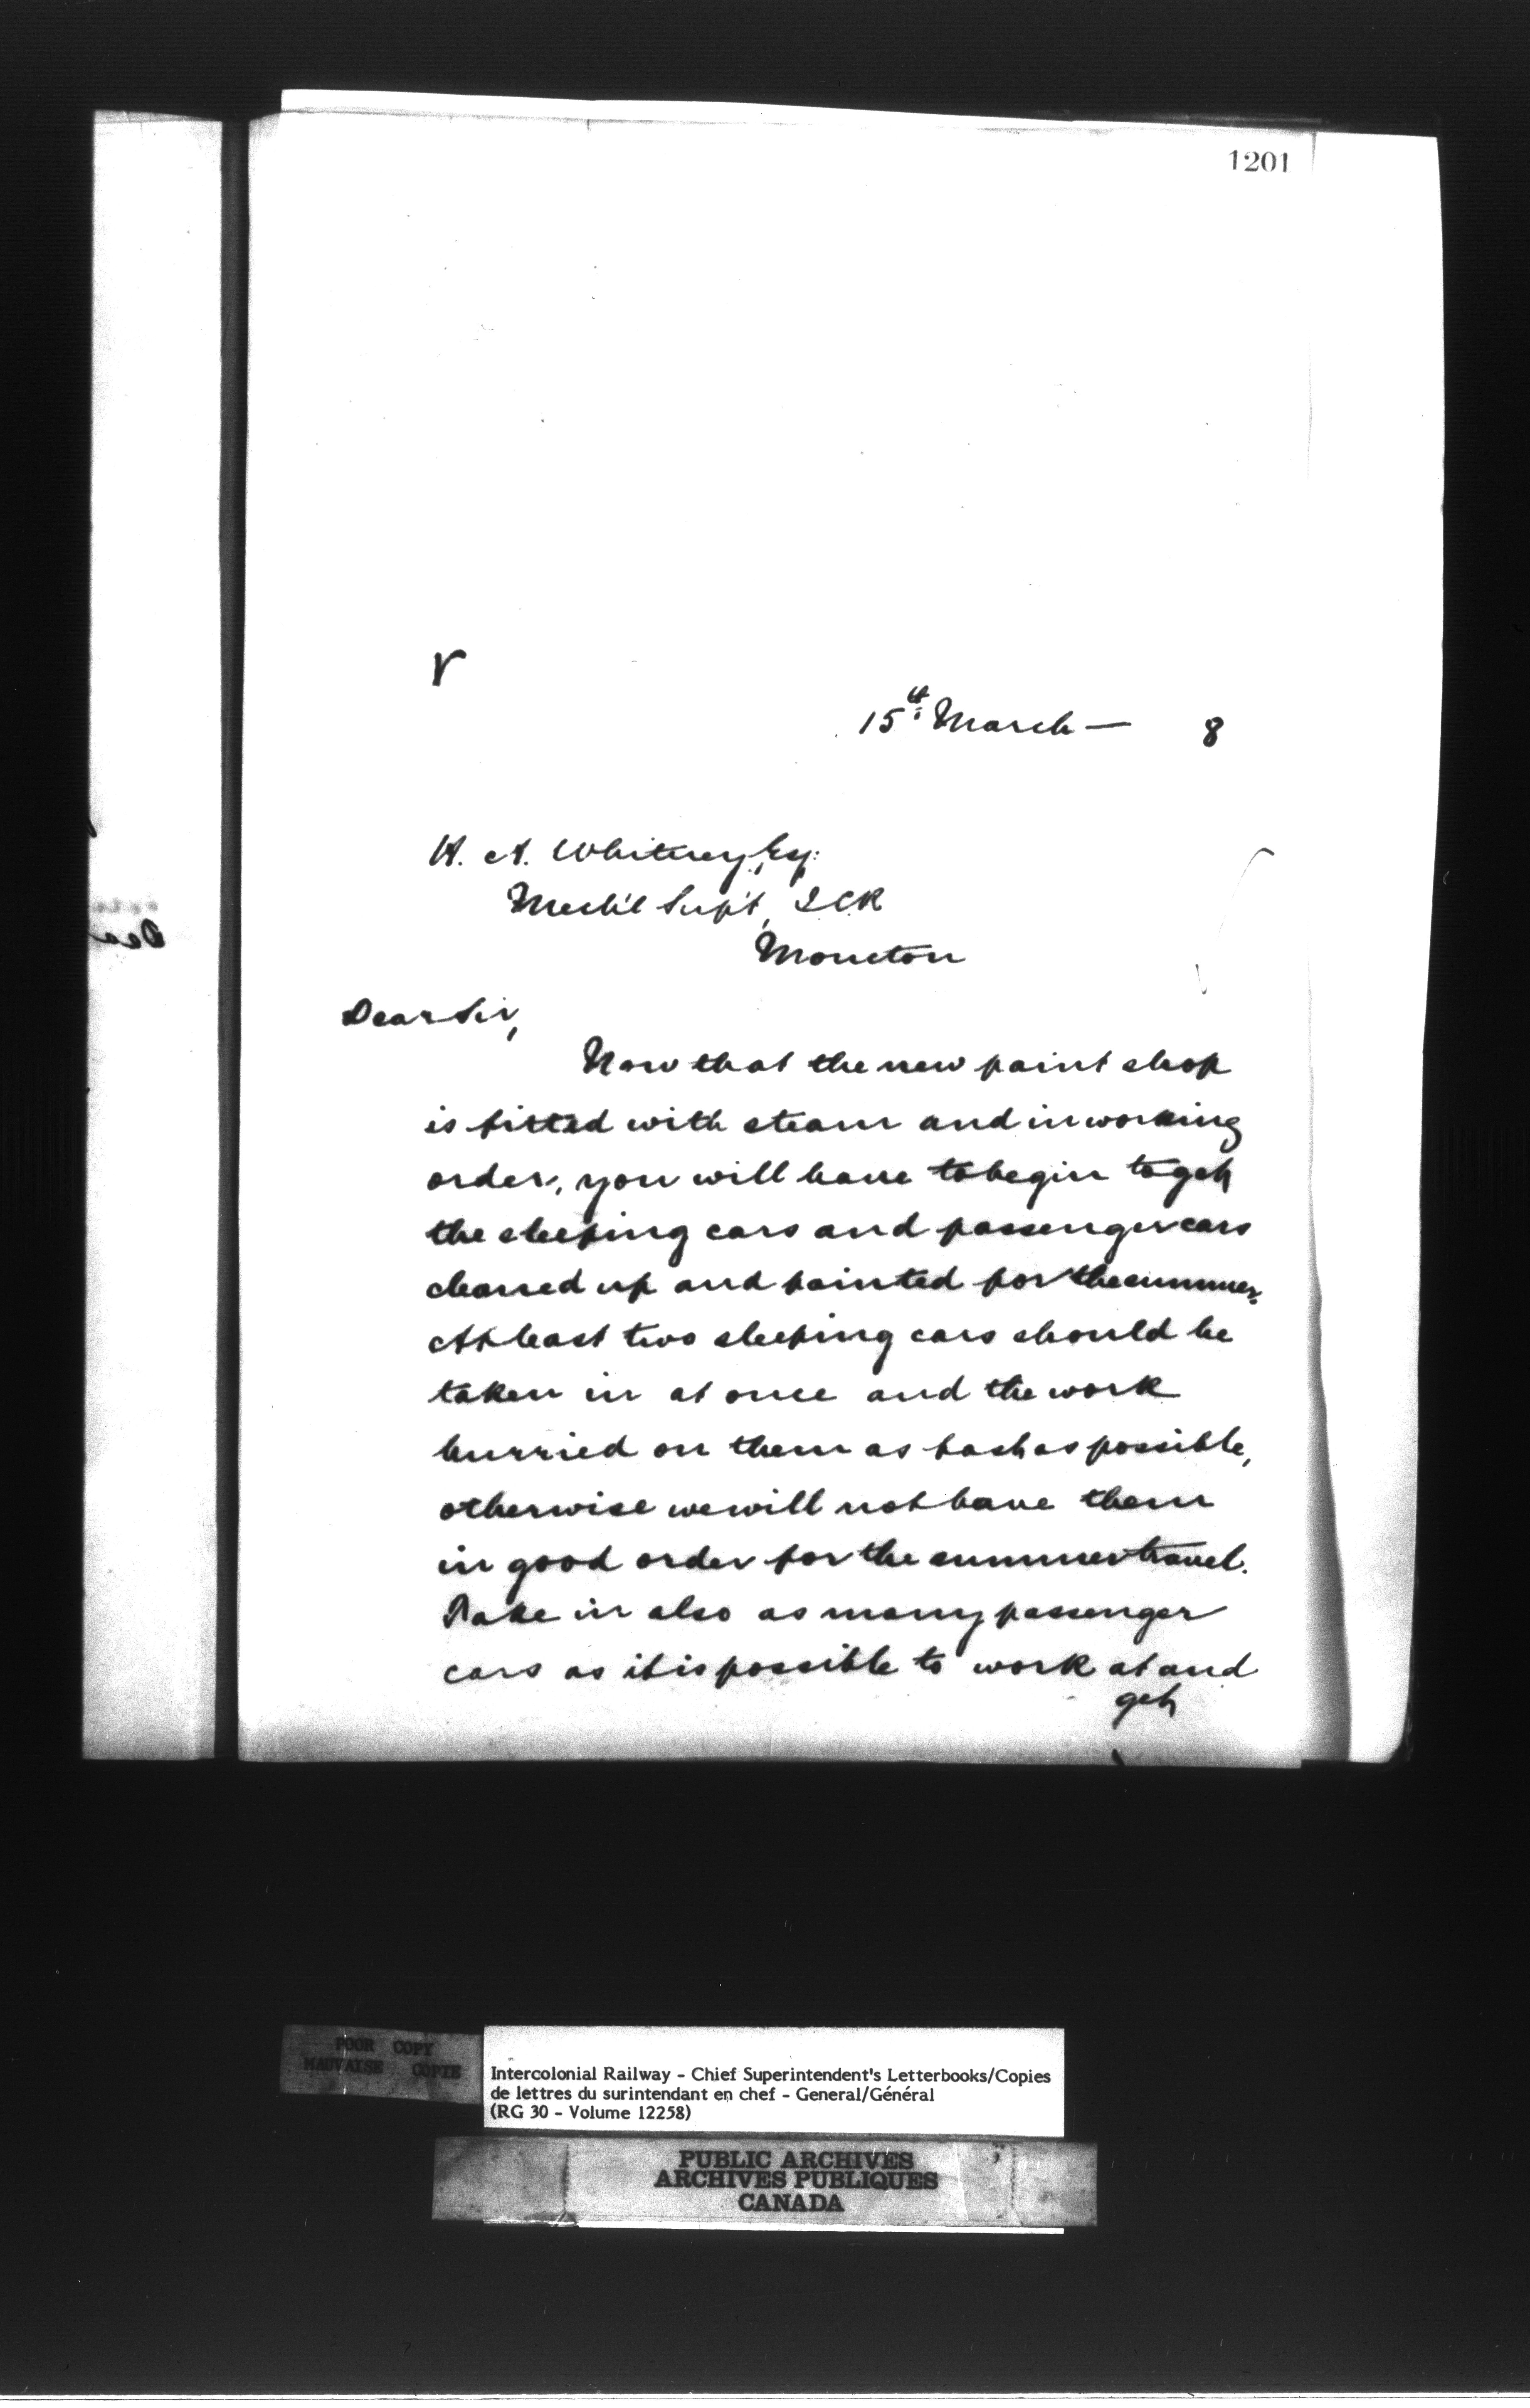 1201
V
15th March — 8
H. A. Whitney, Esq:
Mech'l Sup't, ICR
Moncton
Dear Sir,
Now that the new paint shop
is fitted with steam and in working
order, you will have to begin to get
the sleeping cars and passenger cars
cleaned up and painted for the summer.
At least two sleeping cars should be
taken in at once and the work
hurried on them as fast as possible,
otherwise we will not have them
in good order for the summer travel.
Take in also as many passenger
cars as it is possible to work at and
get
POOR COPY
MAUVAISE COPIE
Intercolonial Railway - Chief Superintendent's Letterbooks/Copies
de lettres du surintendant en chef - General/Général
(RG 30 - Volume 12258)
PUBLIC ARCHIVES
ARCHIVES PUBLIQUES
CANADA